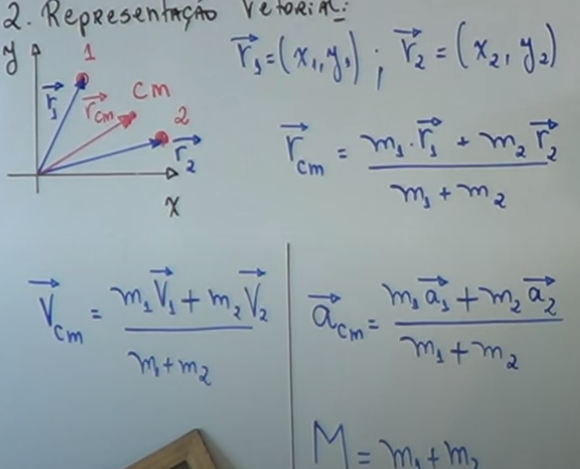 2. Representação Vetorial:
y
1
r⃗₁
r⃗cm
cm
2
r⃗₂
x
r⃗₁ = (x₁, y₁) ; r⃗₂ = (x₂, y₂)
r⃗cm = (m₁·r⃗₁ + m₂r⃗₂) / (m₁ + m₂)
V⃗cm = (m₁V⃗₁ + m₂V⃗₂) / (m₁ + m₂)
a⃗cm = (m₁a⃗₁ + m₂a⃗₂) / (m₁ + m₂)
M = m₁ + m₂